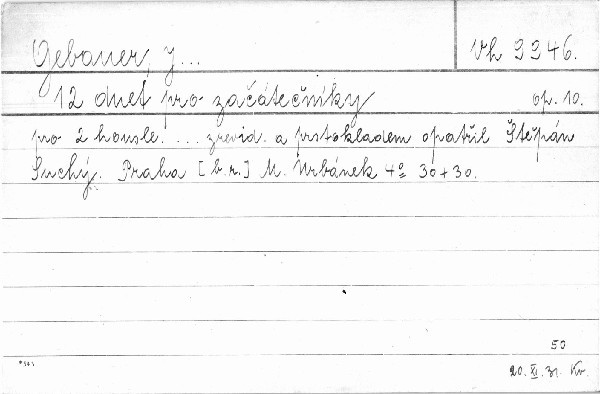 Gebauer, J...
Vh 9946.
12 duet pro začátečníky
op. 10.
pro 2 housle. ... zrevid. a prstokladem opatřil Štěpán
Suchý. Praha [b.r.] M. Urbánek 4° 30+30.
53
20. XI. 31. Kr.